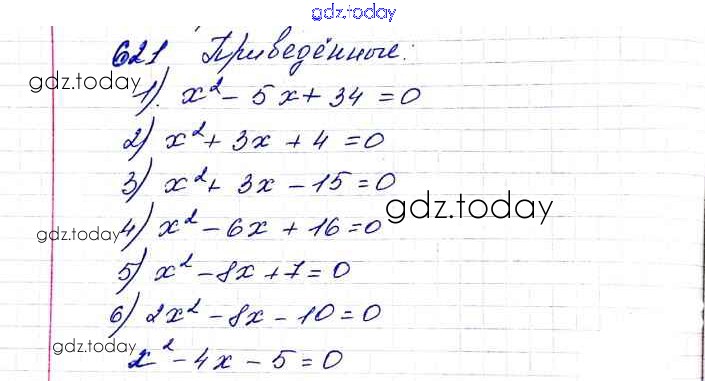 gdz.today
621 Приведённые:
gdz.today
1). x² - 5x + 34 = 0
2) x² + 3x + 4 = 0
3) x² + 3x - 15 = 0
gdz.today
gdz.today
4) x² - 6x + 16 = 0
5) x² - 8x + 7 = 0
6) 2x² - 8x - 10 = 0
gdz.today
x² - 4x - 5 = 0